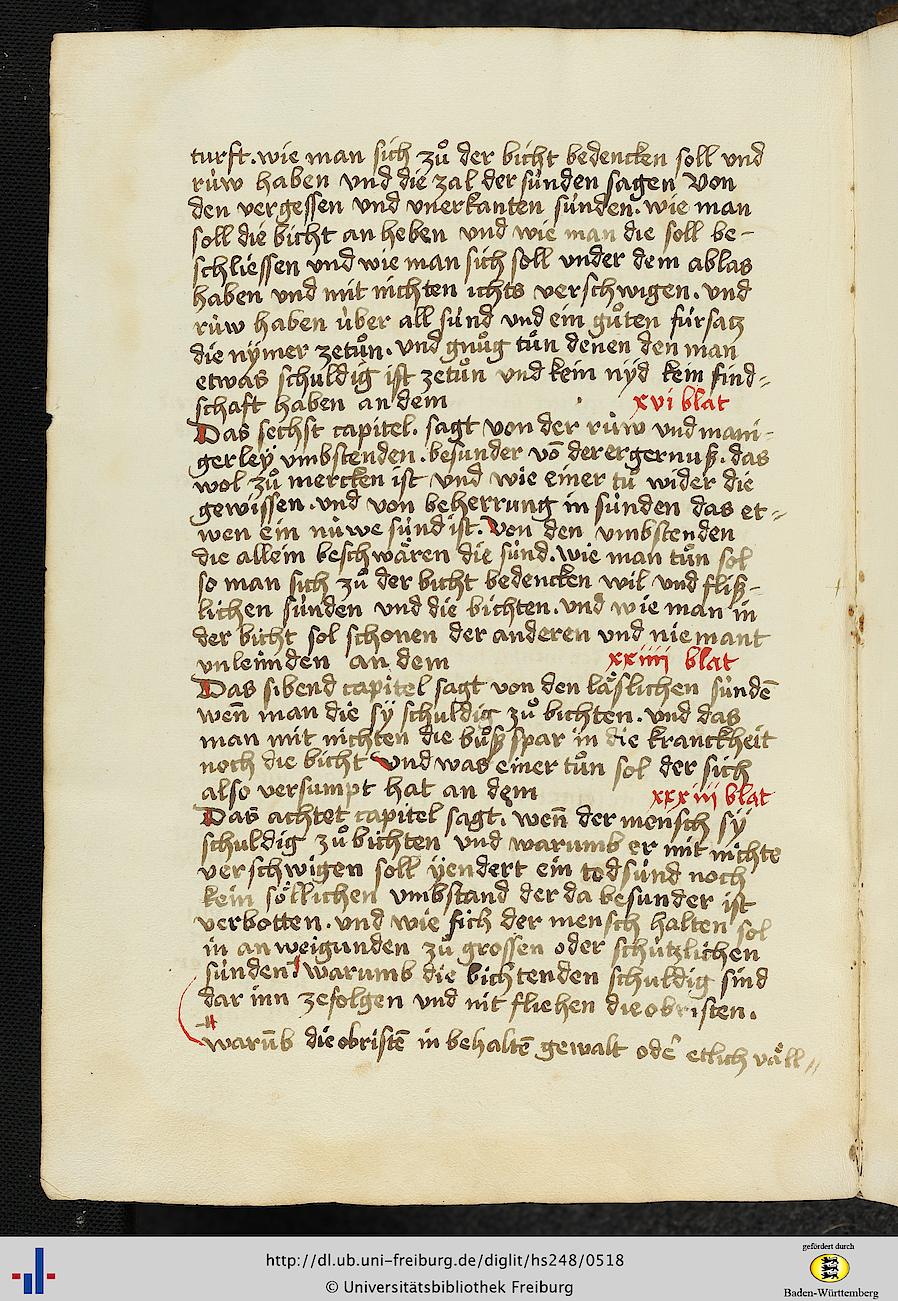 turft. wie man sich zuͦ der bicht bedencken soll und
rùw haben vnd die zal der sùnden sagen Von
den vergessen vnd vnerkanten sùnden. wie man
soll die bicht an heben vnd wie man die soll be-
schliessen vnd wie man sich soll vnder dem ablas
haben vnd mit nichten ichts verschwigen. vnd
rùw haben ùber all sùnd vnd ein guͦten fùrsatz
die nymer zetuͦn. vnd gnuͦg tuͦn denen den man
etwas schuldig ist zetuͦn vnd kein nyd kein find-
schaft haben an dem xvi blat
Das sechst capitel. sagt von der rùw vnd mani-
gerley vmbstenden. besunder vō der ergernuß. das
wol zuͦ mercken ist vnd wie einer tuͦ wider die
gewissen. vnd von beherrung in sùnden das et-
wen ein nùwe sùnd ist. Von den vmbstenden
die allein beschwären die sùnd. wie man tuͦn sol
so man sich zuͦ der bicht bedencken wil vnd fliß-
lichen sùnden vnd die bichten. vnd wie man in
der bicht sol schonen der anderen vnd niemant
vnleimden an dem xxiiii blat
Das sibend capitel sagt von den läslichen sùndē
wen̄ man die sy schuldig zuͦ bichten. vnd das
man mit nichten die buͦß spar in die kranckheit
noch die bicht Vnd was einer tuͦn sol der sich
also versumpt hat an dem xxxiii blat
Das achtet capitel sagt. wen̄ der mensch sy
schuldig zuͦ bichten vnd warumb er mit nichte
verschwigen soll yendert ein todsùnd noch
kein söllichen vmbstand der da besunder ist
verbotten. vnd wie sich der mensch halten sol
in anweigunden zuͦ grossen oder schutzlichen
sùnden warumb die bichtenden schuldig sind
dar inn zefolgen vnd nit fliehen die obristen.
warūb die obristē in behaltē gewalt odē etlich väll
http://dl.ub.uni-freiburg.de/diglit/hs248/0518
© Universitätsbibliothek Freiburg
gefördert durch
Baden-Württemberg